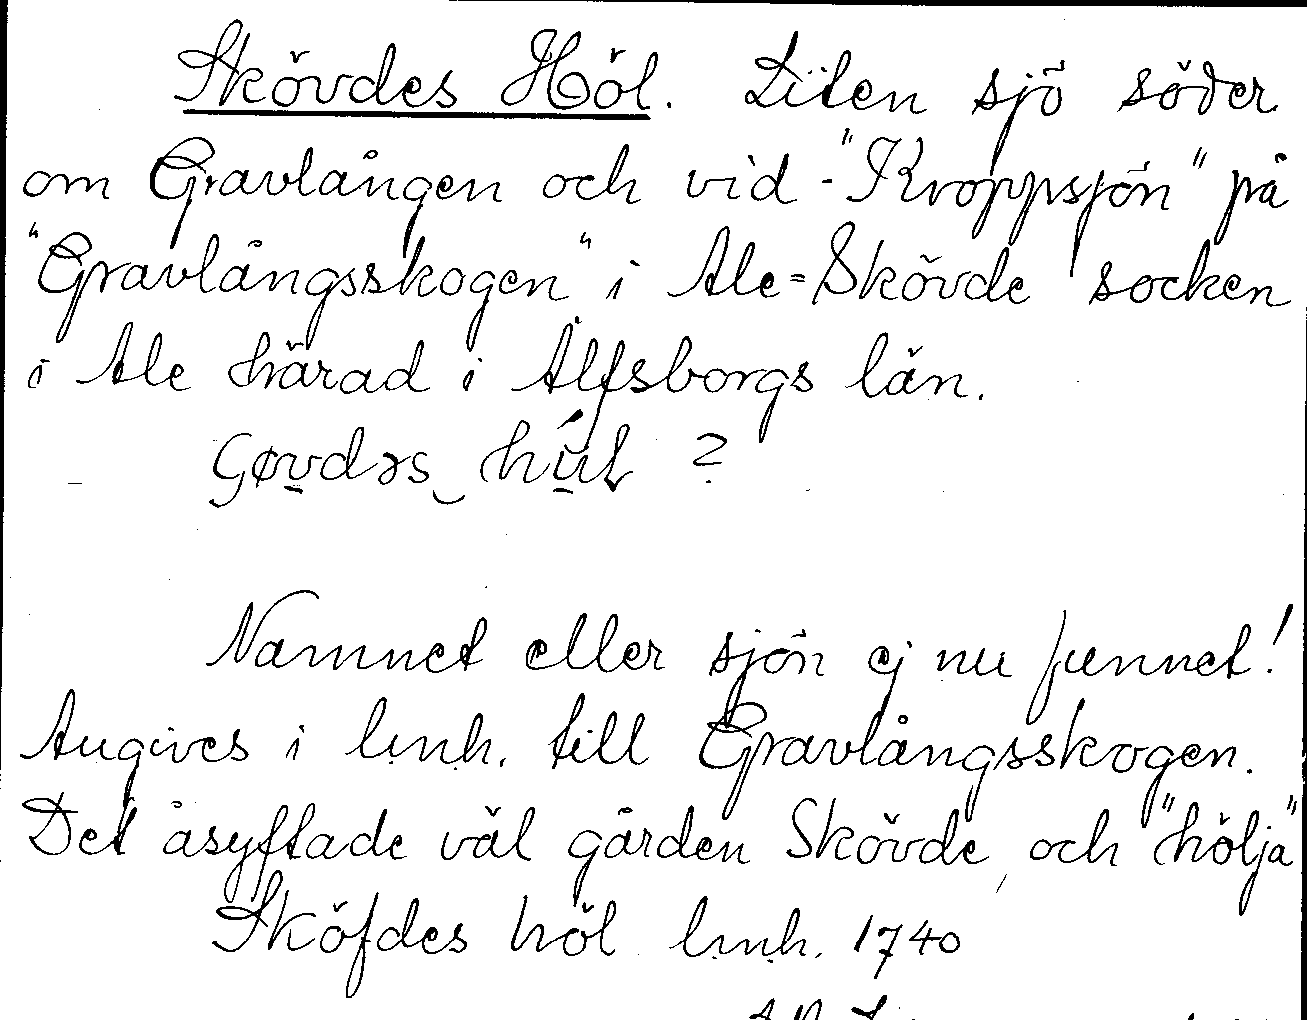 Skövdes Höl. Liten sjö söder
om Gravlången och vid "Kroppsjön" på
"Gravlångsskogen" i Ale=Skövde socken
i Ale härad i Älfsborgs län.
?
Namnet eller sjön ej nu funnet!
Angives i lmh. till Gravlångsskogen.
Det åsyftade väl gården Skövde och "hölja"
Sköfdes höl lmh. 1740